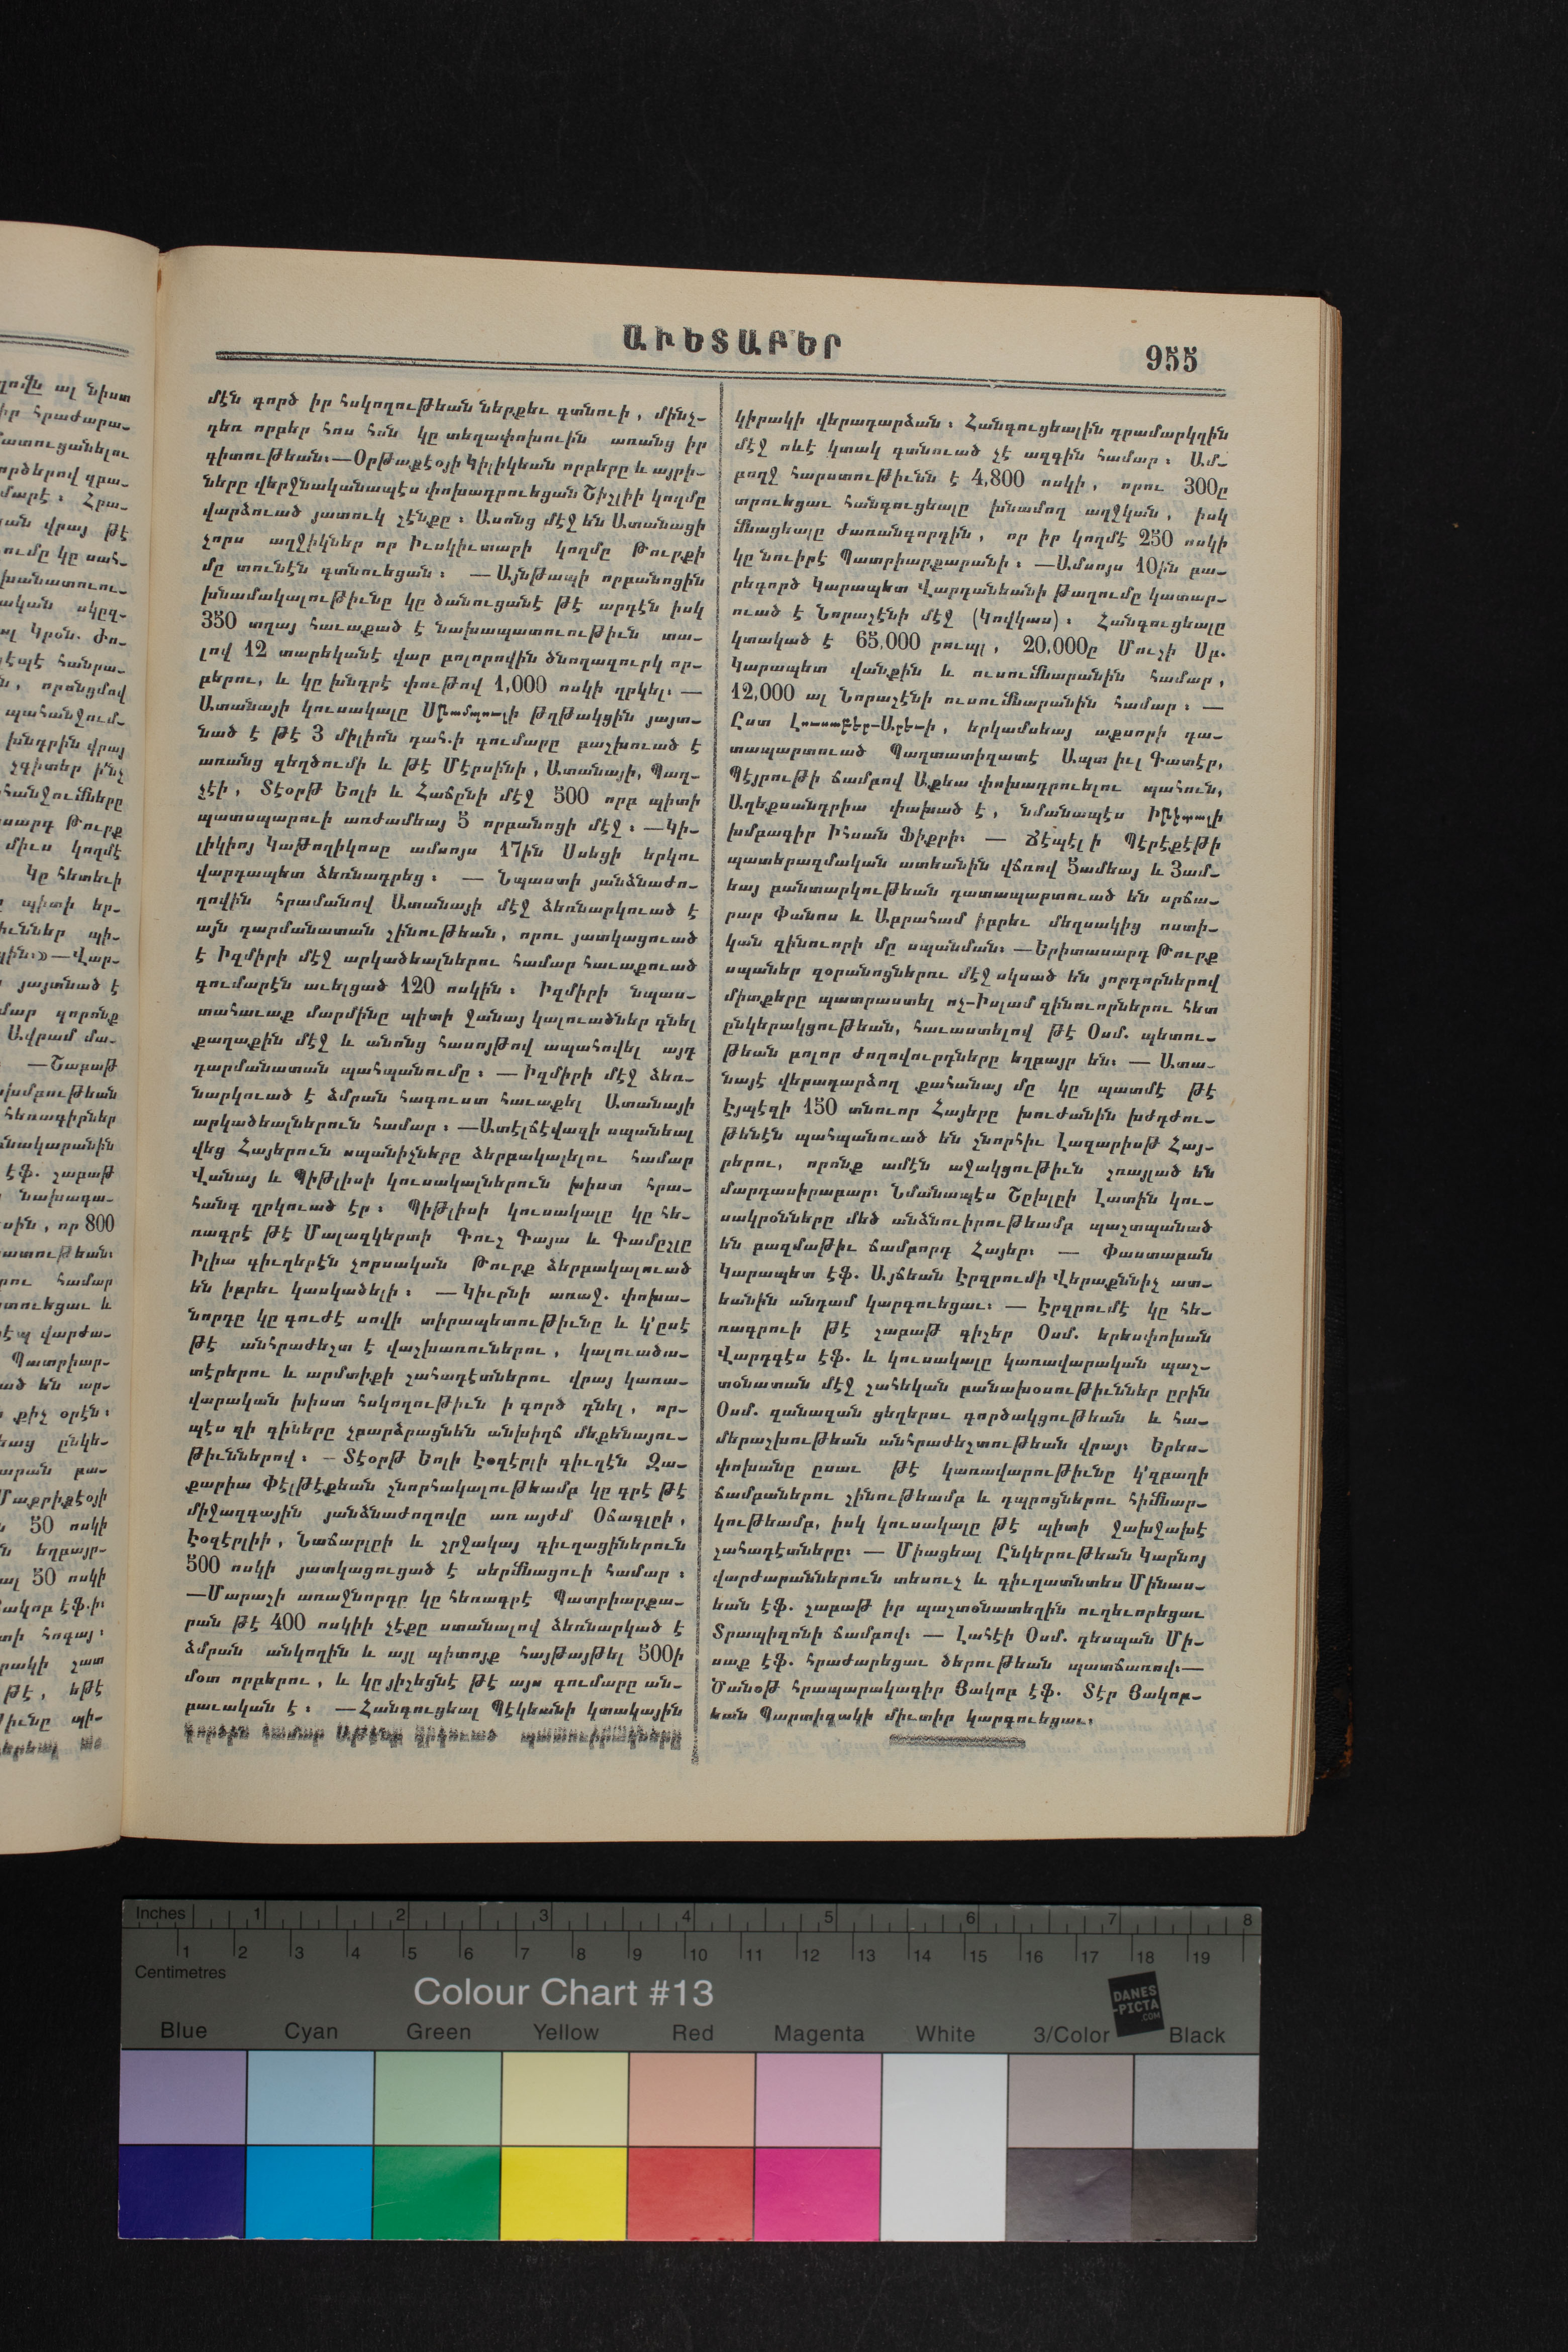 ԱՒԵՏԱԲԵՐ
955
մէն գործ իր հսկողութեան ներքեւ գտնուի, մինչ-
դեռ որբեր հոս հոն կը տեղափոխուին առանց իր
գիտութեան։—Օրթաքէօյի Կիլիկեան որբերը և այրի-
ները վերջնականապէս փոխադրուեցան Շիշլիի կողմը
վարձուած յատուկ շէնքը։ Ասոնց մէջ են Ատանացի
չորս աղջիկներ որ Իւսկիւտարի կողմը Թուրքի
մը տունէն գտնուեցան։ —Այնթապի որբանոցին
խնամակալութիւնը կը ծանուցանէ թէ արդէն իսկ
350 տղայ հաւաքած է նախապատուութիւն տա-
լով 12 տարեկանէ վար բոլորովին ծնողազուրկ որ-
բերու, և կը խնդրէ փութով 1,000 ոսկի ղրկել։ —
Ատանայի կուսակալը Սթամպուլի թղթակցին յայտ-
նած է թէ 3 միլիոն դահ.ի գումարը բաշխուած է
առանց զեղծումի և թէ Մէրսինի, Ատանայի, Պաղ-
չէի, Տէօրթ Եոլի և Հաճընի մէջ 500 որբ պիտի
պատսպարուի առժամեայ 5 որբանոցի մէջ։ —Կի-
լիկիոյ Կաթողիկոսը ամսոյս 17ին Սսեցի երկու
վարդապետ ձեռնադրեց։ — Նպաստի յանձնաժո-
ղովին հրամանով Ատանայի մէջ ձեռնարկուած է
այն դարմանատան շինութեան, որու յատկացուած
է Իզմիրի մէջ արկածեալներու համար հաւաքուած
գումարէն աւելցած 120 ոսկին։ Իզմիրի նպաս-
տահաւաք մարմինը պիտի ջանայ կալուածներ գնել
քաղաքին մէջ և անոնց հասոյթով ապահովել այդ
դարմանատան պահպանումը։ — Իզմիրի մէջ ձեռ-
նարկուած է ձմրան հագուստ հաւաքել Ատանայի
արկածեալներուն համար։ —Ատէլճէվազի սպանեալ
վեց Հայերուն սպանիչները ձերբակալելու համար
Վանայ և Պիթլիսի կուսակալներուն խիստ հրա-
հանգ ղրկուած էր։ Պիթլիսի կուսակալը կը հե-
ռագրէ թէ Մալազկերտի Գուշ Գայա և Գամըշլը
Իլիա գիւղերէն չորսական Թուրք ձերբակալուած
են իբրեւ կասկածելի։ —Կիւրնի առաջ. փոխա-
նորդը կը գուժէ սովի տիրապետութիւնը և կ'ըսէ
թէ անհրաժեշտ է վաշխառուներու, կալուածա-
տէրերու և արմտիքի շահադէտներու վրայ կառա-
վարական խիստ հսկողութիւն ի գործ դնել, որ-
պէս զի գիները չբարձրացնեն անխիղճ մեքենայու-
թիւններով։ — Տէօրթ Եոլի Էօզէրլի գիւղէն Զա-
քարիա Փէլթէքեան շնորհակալութեամբ կը գրէ թէ
միջազգային յանձնաժողովը առ այժմ Օճագլըի,
Էօզէրլիի, Նաճարլըի և շրջակայ գիւղացիներուն
500 ոսկի յատկացուցած է սերմնացուի համար։
—Մարաշի առաջնորդը կը հեռագրէ Պատրիարքա-
րան թէ 400 ոսկիի չէքը ստանալով ձեռնարկած է
ձմրան անկողին և այլ պիտոյք հայթայթել 500ի
մօտ որբերու, և կը յիշեցնէ թէ այս գումարը ան-
բաւական է։ —Հանգուցեալ Պէկեանի կտակային
գործին համար Աթէնք ղրկուած պատուիրակները
կիրակի վերադարձան։ Հանգուցեալին դրամարկղին
մէջ ոևէ կտակ գտնուած չէ ազգին համար։ Ամ-
բողջ հարստութիւնն է 4,800 ոսկի, որու 300ը
տրուեցաւ հանգուցեալը խնամող աղջկան, իսկ
մնացեալը ժառանգորդին, որ իր կողմէ 250 ոսկի
կը նուիրէ Պատրիարքարանի։ —Ամսոյս 10ին բա-
րեգործ Կարապետ Վարդանեանի թաղումը կատար-
ուած է Նորաշէնի մէջ (Կովկաս)։ Հանգուցեալը
կտակած է 65,000 րուպլ, 20,000ը Մուշի Սբ.
Կարապետ վանքին և ուսումնարանին համար,
12,000 ալ Նորաշէնի ուսումնարանին համար։ —
Ըստ Լուսաբեր-Արեւ-ի, երկամսեայ աքսորի դա-
տապարտուած Պաղտատիզատէ Ապտ իւլ Գատէր,
Պէյրութի ճամբով Աքեա փոխադրուելու պահուն,
Աղեքսանդրիա փախած է, նմանապէս Իթիտալի
խմբագիր Իհսան Ֆիքրի։ — Ճէպէլ ի Պէրէքէթի
պատերազմական ատեանին վճռով 5ամեայ և 3ամ-
եայ բանտարկութեան դատապարտուած են սրճա-
րար Փանոս և Աբրահամ իբրեւ մեղսակից ոստի-
կան զինուորի մը սպանման։ —Երիտասարդ Թուրք
սպաներ զօրանոցներու մէջ սկսած են յորդորներով
միտքերը պատրաստել ոչ-Իսլամ զինուորներու հետ
ընկերակցութեան, հաւաստելով թէ Օսմ. պետու-
թեան բոլոր ժողովուրդները եղբայր են։ — Ատա-
նայէ վերադարձող քահանայ մը կը պատմէ թէ
Էյպէզի 150 տնուոր Հայերը խուժանին խժդժու-
թենէն պահպանուած են շնորհիւ Լազարիսթ Հայ-
րերու, որոնք ամէն աջակցութիւն շռայլած են
մարդասիրաբար։ Նմանապէս Շըխլըի Լատին կու-
սակրօնները մեծ անձնուիրութեամբ պաշտպանած
են բազմաթիւ ճամբորդ Հայեր։ — Փաստաբան
Կարապետ էֆ. Այճեան Էրզրումի Վերաքննիչ ատ-
եանին անդամ կարգուեցաւ։ — Էրզրումէ կը հե-
ռագրուի թէ շաբաթ գիշեր Օսմ. երեսփոխան
Վարդգէս էֆ. և կուսակալը կառավարական պաշ-
տօնատան մէջ շահեկան բանախօսութիւններ ըրին
Օսմ. զանազան ցեղերու գործակցութեան և հա-
մերաշխութեան անհրաժեշտութեան վրայ։ Երես-
փոխանը ըսաւ թէ կառավարութիւնը կ'զբաղի
ճամբաներու շինութեամբ և դպրոցներու հիմնար-
կութեամբ, իսկ կուսակալը թէ պիտի ջախջախէ
շահադէտները։ — Միացեալ Ընկերութեան Կարնոյ
վարժարաններուն տեսուչ և գիւղատնտես Մինաս-
եան էֆ. շաբաթ իր պաշտօնատեղին ուղեւորեցաւ
Տրապիզոնի ճամբով։ — Լահէի Օսմ. դեսպան Մի-
սաք էֆ. հրաժարեցաւ ծերութեան պատճառով։—
Ծանօթ հրապարակագիր Յակոբ էֆ. Տէր Յակոբ-
եան Պարտիզակի միւտիր կարգուեցաւ։
Inches 1 2 3 4 5 6 7 8
1 2 3 4 5 6 7 8 9 10 11 12 13 14 15 16 17 18 19
Centimetres
Colour Chart #13
DANES
-PICTA
.COM
Blue Cyan Green Yellow Red Magenta White 3/Color Black